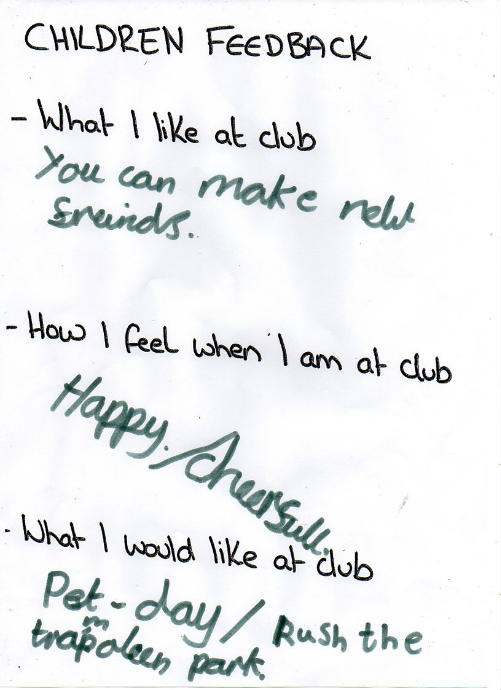 CHILDREN FEEDBACK
- What I like at club
You can make new
freinds.
- How I feel when I am at club
Happy. / Cheerfull.
- What I would like at club
Pet-day / Rush the
trampoleen park.